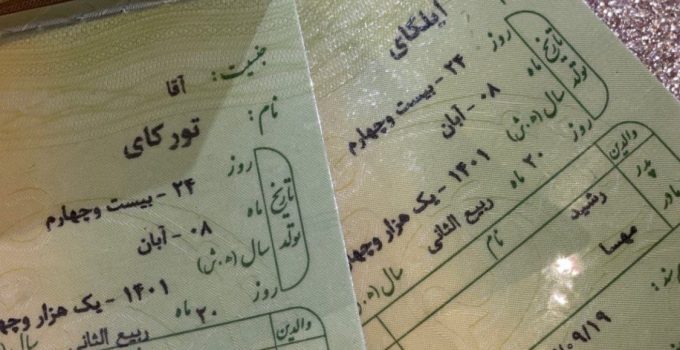 جنسیت : آقا
نام : تورکای
تاریخ تولد
روز ۲۴ - بیست وچهارم
ماه ۰۸ - آبان
سال (ه.ش) ۱۴۰۱ - یک هزار وچها
روز ۲۰ ماه ربیع الثانی
والدین
ایلگای
تاریخ تولد
روز ۲۴ - بیست وچهارم
ماه ۰۸ - آبان
سال (ه.ش) ۱۴۰۱ - یک هزار وچها
روز ۲۰ ماه ربیع الثانی سال (ه.
والدین نام
پدر رشید
مادر مهسا
۰۹/۱۹